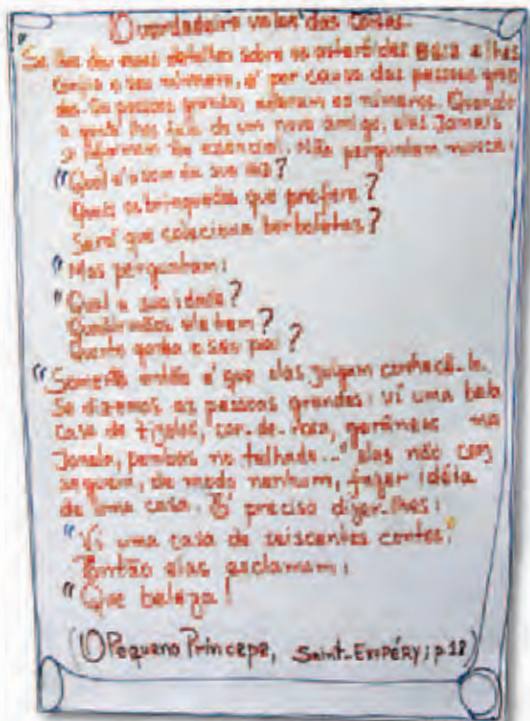 O verdadeiro valor das coisas.
"Se lhes dou esses detalhes sobre os asteróides B612 e lhes
conto o seu número, é por causa das pessoas gran
des. As pessoas grandes adoram os números. Quando
a gente lhes fala de um novo amigo, elas jamais
se informam do essencial. Não perguntam nunca:
"Qual é o som da sua voz?
Quais os brinquedos que prefere?
Será que coleciona borboletas?
"Mas perguntam:
"Qual a sua idade?
Quantos irmãos ele tem?
Quanto ganha o seu pai?
"Somente então é que elas julgam conhecê-lo.
Se dizemos às pessoas grandes: vi uma bela
casa de tijolos, cor-de-rosa, gerânios na
janela, pombas no telhado..." elas não con
seguem, de modo nenhum, fazer idéia
de uma casa. É preciso dizer-lhes:
"Vi uma casa de seiscentos contos."
Então elas exclamam:
"Que beleza!
(O Pequeno Príncepe, Saint-Exupéry; p.18)